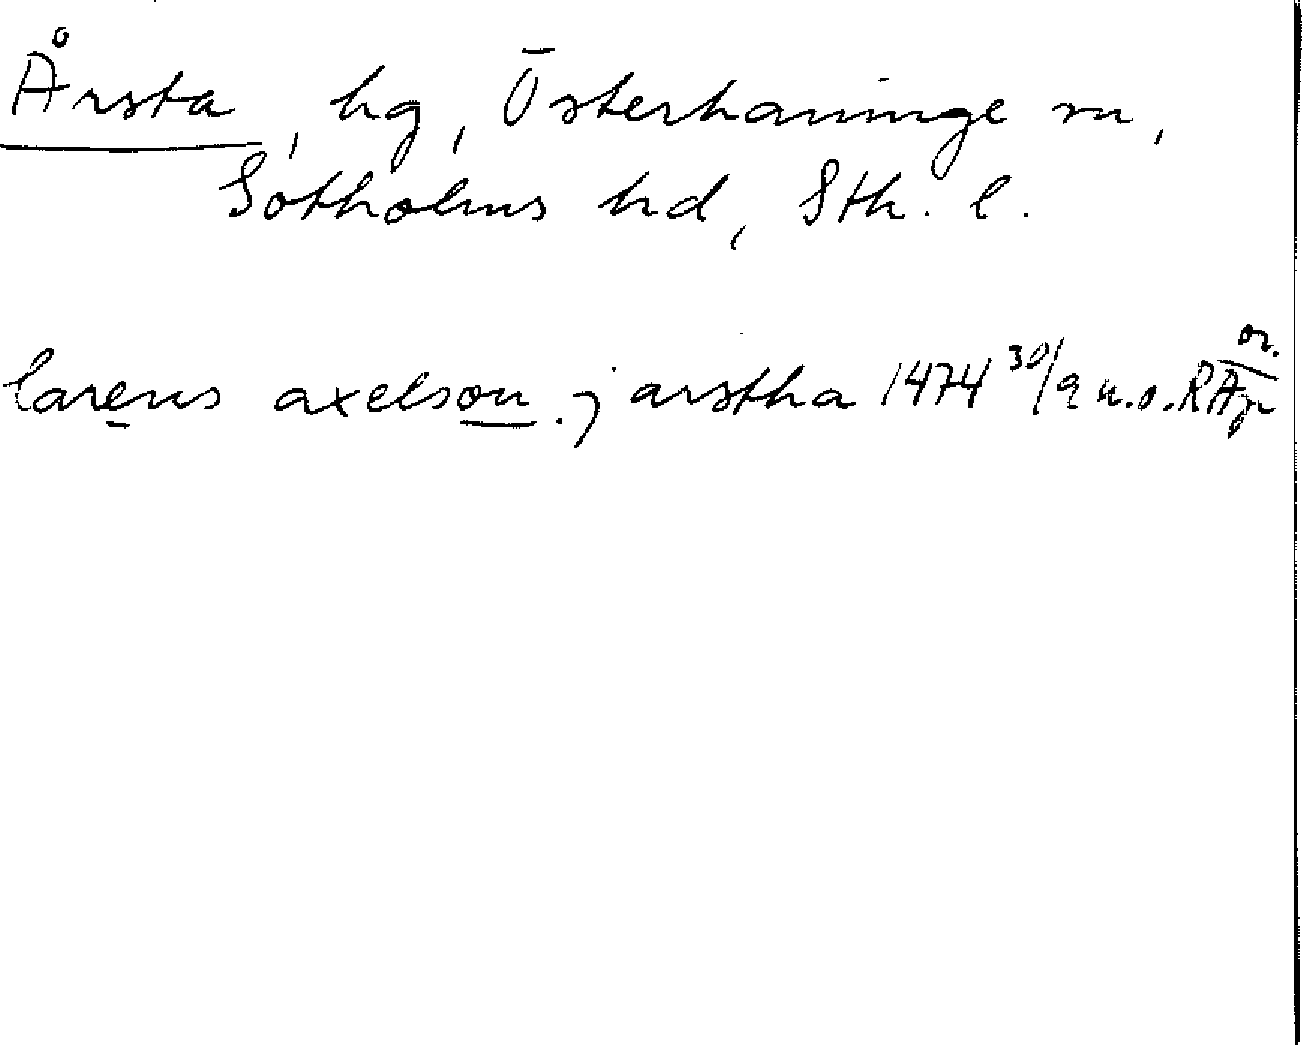 Årsta, hg, Österhaninge sn,
Sotholms hd, Sth. l.
larens axelson. j arstha 1474 30/9 u.o. RAp or.